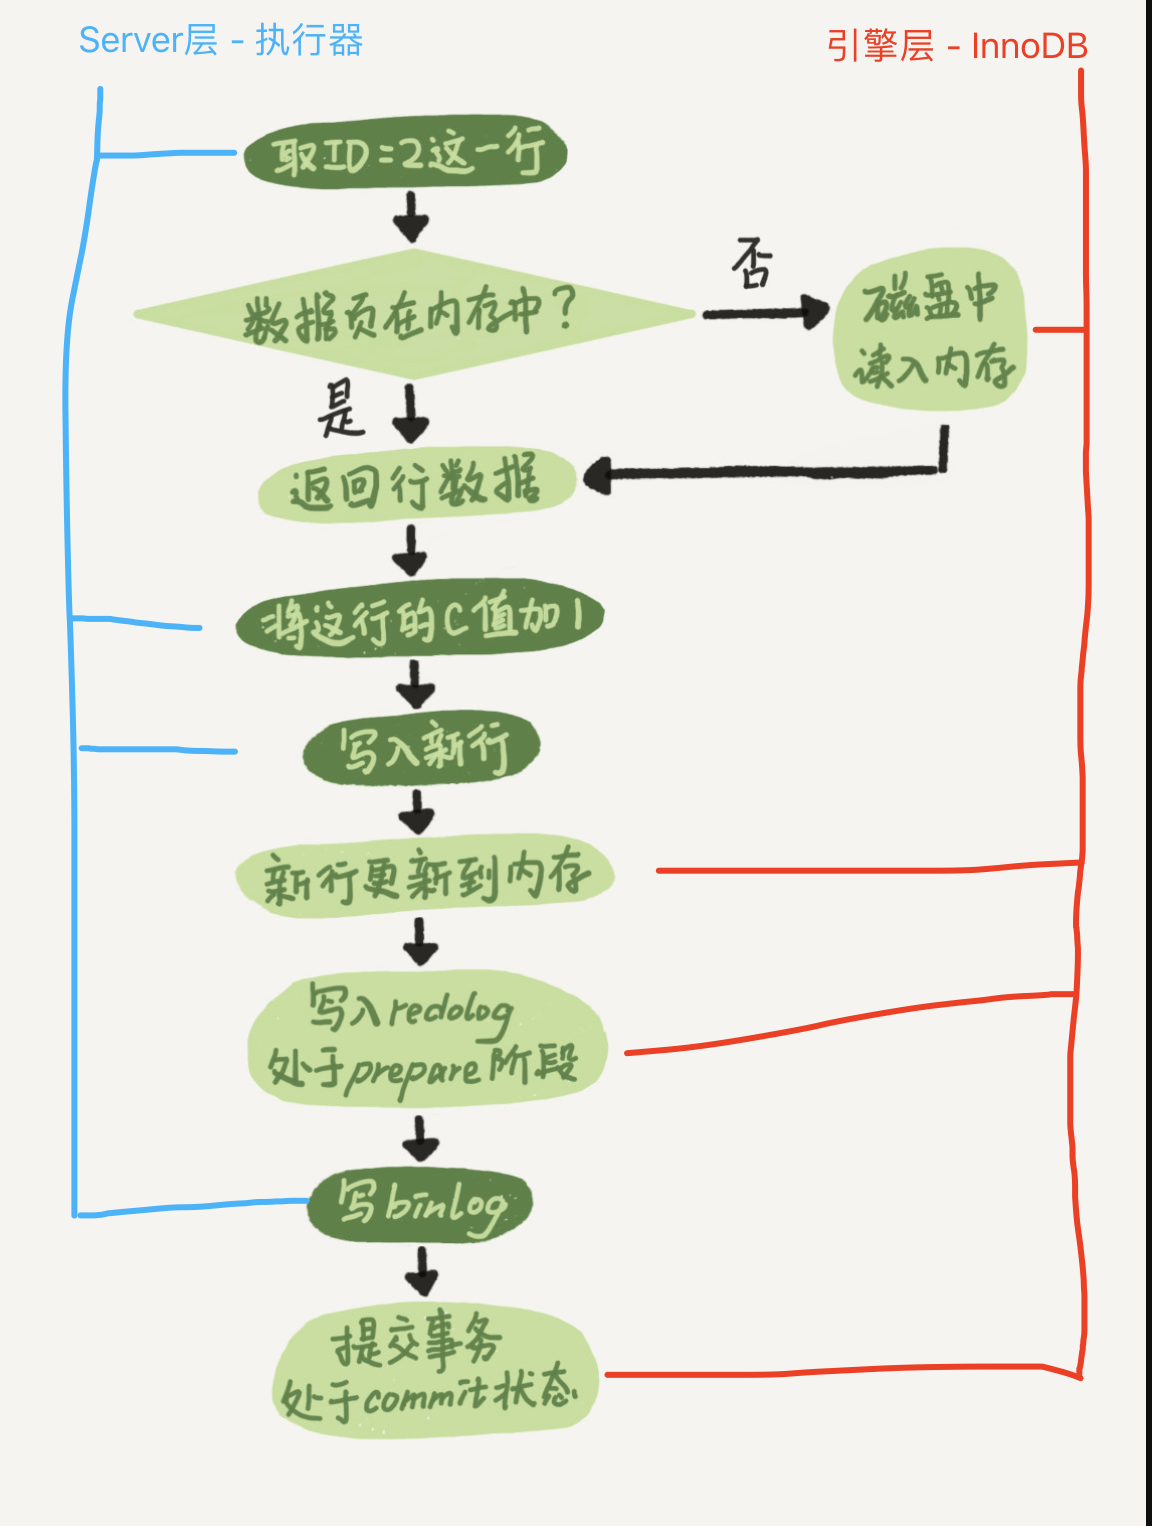 Server层 - 执行器
引擎层 - InnoDB
取ID=2这一行
数据页在内存中？
否
磁盘中
读入内存
是
返回行数据
将这行的C值加1
写入新行
新行更新到内存
写入redolog
处于prepare阶段
写binlog
提交事务
处于commit状态